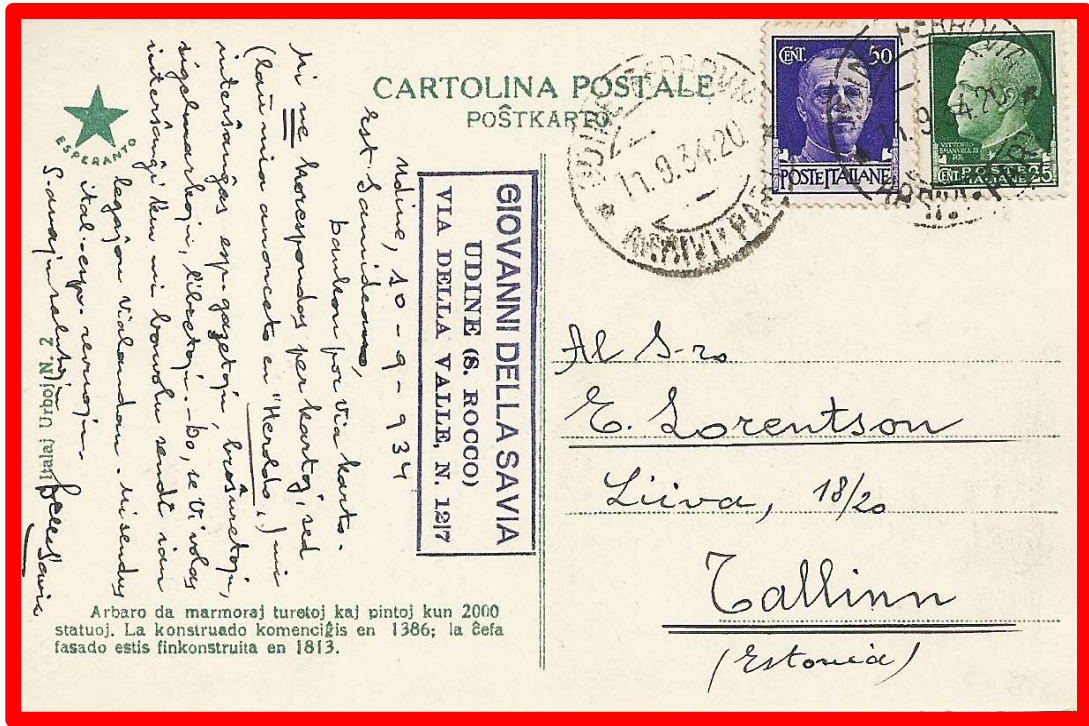 CARTOLINA POSTALE
POŜTKARTO
ESPERANTO
CENT. 50
POSTE ITALIANE
VITTORIO
EMANUELE III
RE
CENT. POSTE ITALIANE 25
UDINE FERROVIA
11.9.34.20
11.9.34.20
GIOVANNI DELLA SAVIA
UDINE (S. ROCCO)
VIA DELLA VALLE, N. 12/7
Udine, 10-9-934
Est. Samideano,
Dankon por via karto.
Mi ne korespondas per kartoj, sed
(laŭ mia anonceto en "Heroldo") mi
interŝanĝas esp. gazetojn, broŝuretojn,
sigelmarkojn, libretojn. - Do, se Vi volas
interŝanĝi kun mi bonvolu sendi ian
legaĵon vialandan. Mi sendus
ital-esp. revuojn.
Samajn salutojn
Della Savia
Italaj Urboj N. 2
Arbaro da marmoraj turetoj kaj pintoj kun 2000
statuoj. La konstruado komenciĝis en 1386; la ĉefa
fasado estis finkonstruita en 1813.
Al S-ro
E. Lorentson
Liiva, 18/20
Tallinn
(Estonia)